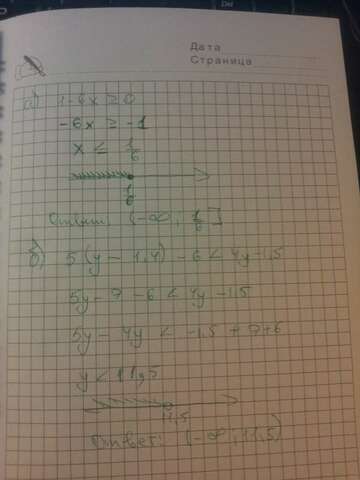 Дата
Страница
а) 1-6x ≥ 0
-6x ≥ -1
x ≤ 1/6
1/6
Ответ: (-∞; 1/6]
б) 5(y - 1,4) - 6 < 4y - 1,5
5y - 7 - 6 < 4y - 1,5
5y - 4y < -1,5 + 7+6
y < 11,5
11,5
Ответ: (-∞; 11,5)